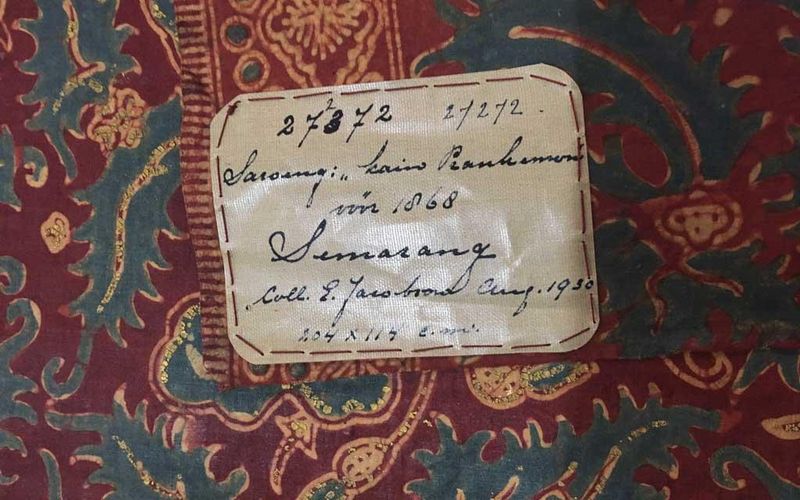 27372 27272.
Saroeng: „kain Prankemon
vór 1868
Semarang
Coll. E. Jacobson Aug. 1930
204 x 114 c.m.